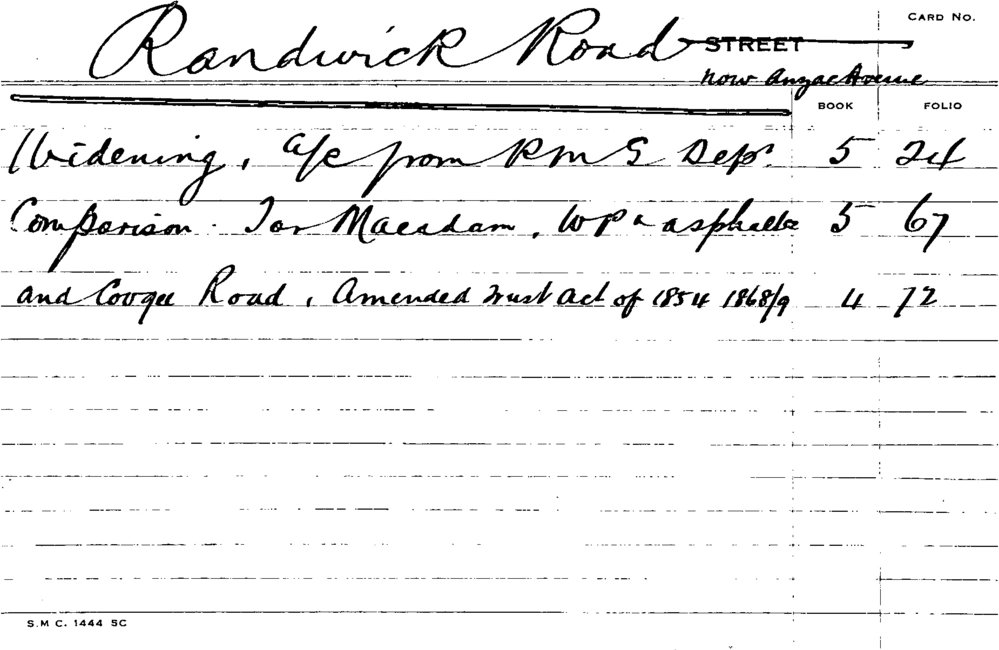 CARD No.
Randwick Road STREET
now Anzac Avenue
BOOK FOLIO
Widening, a/c from R M G Dept. 5 24
Comparison. Tar Macadam, W P & asphalte 5 67
and Coogee Road, Amended Trust Act of 1854 1868/9 4 72
S.M C. 1444 SC